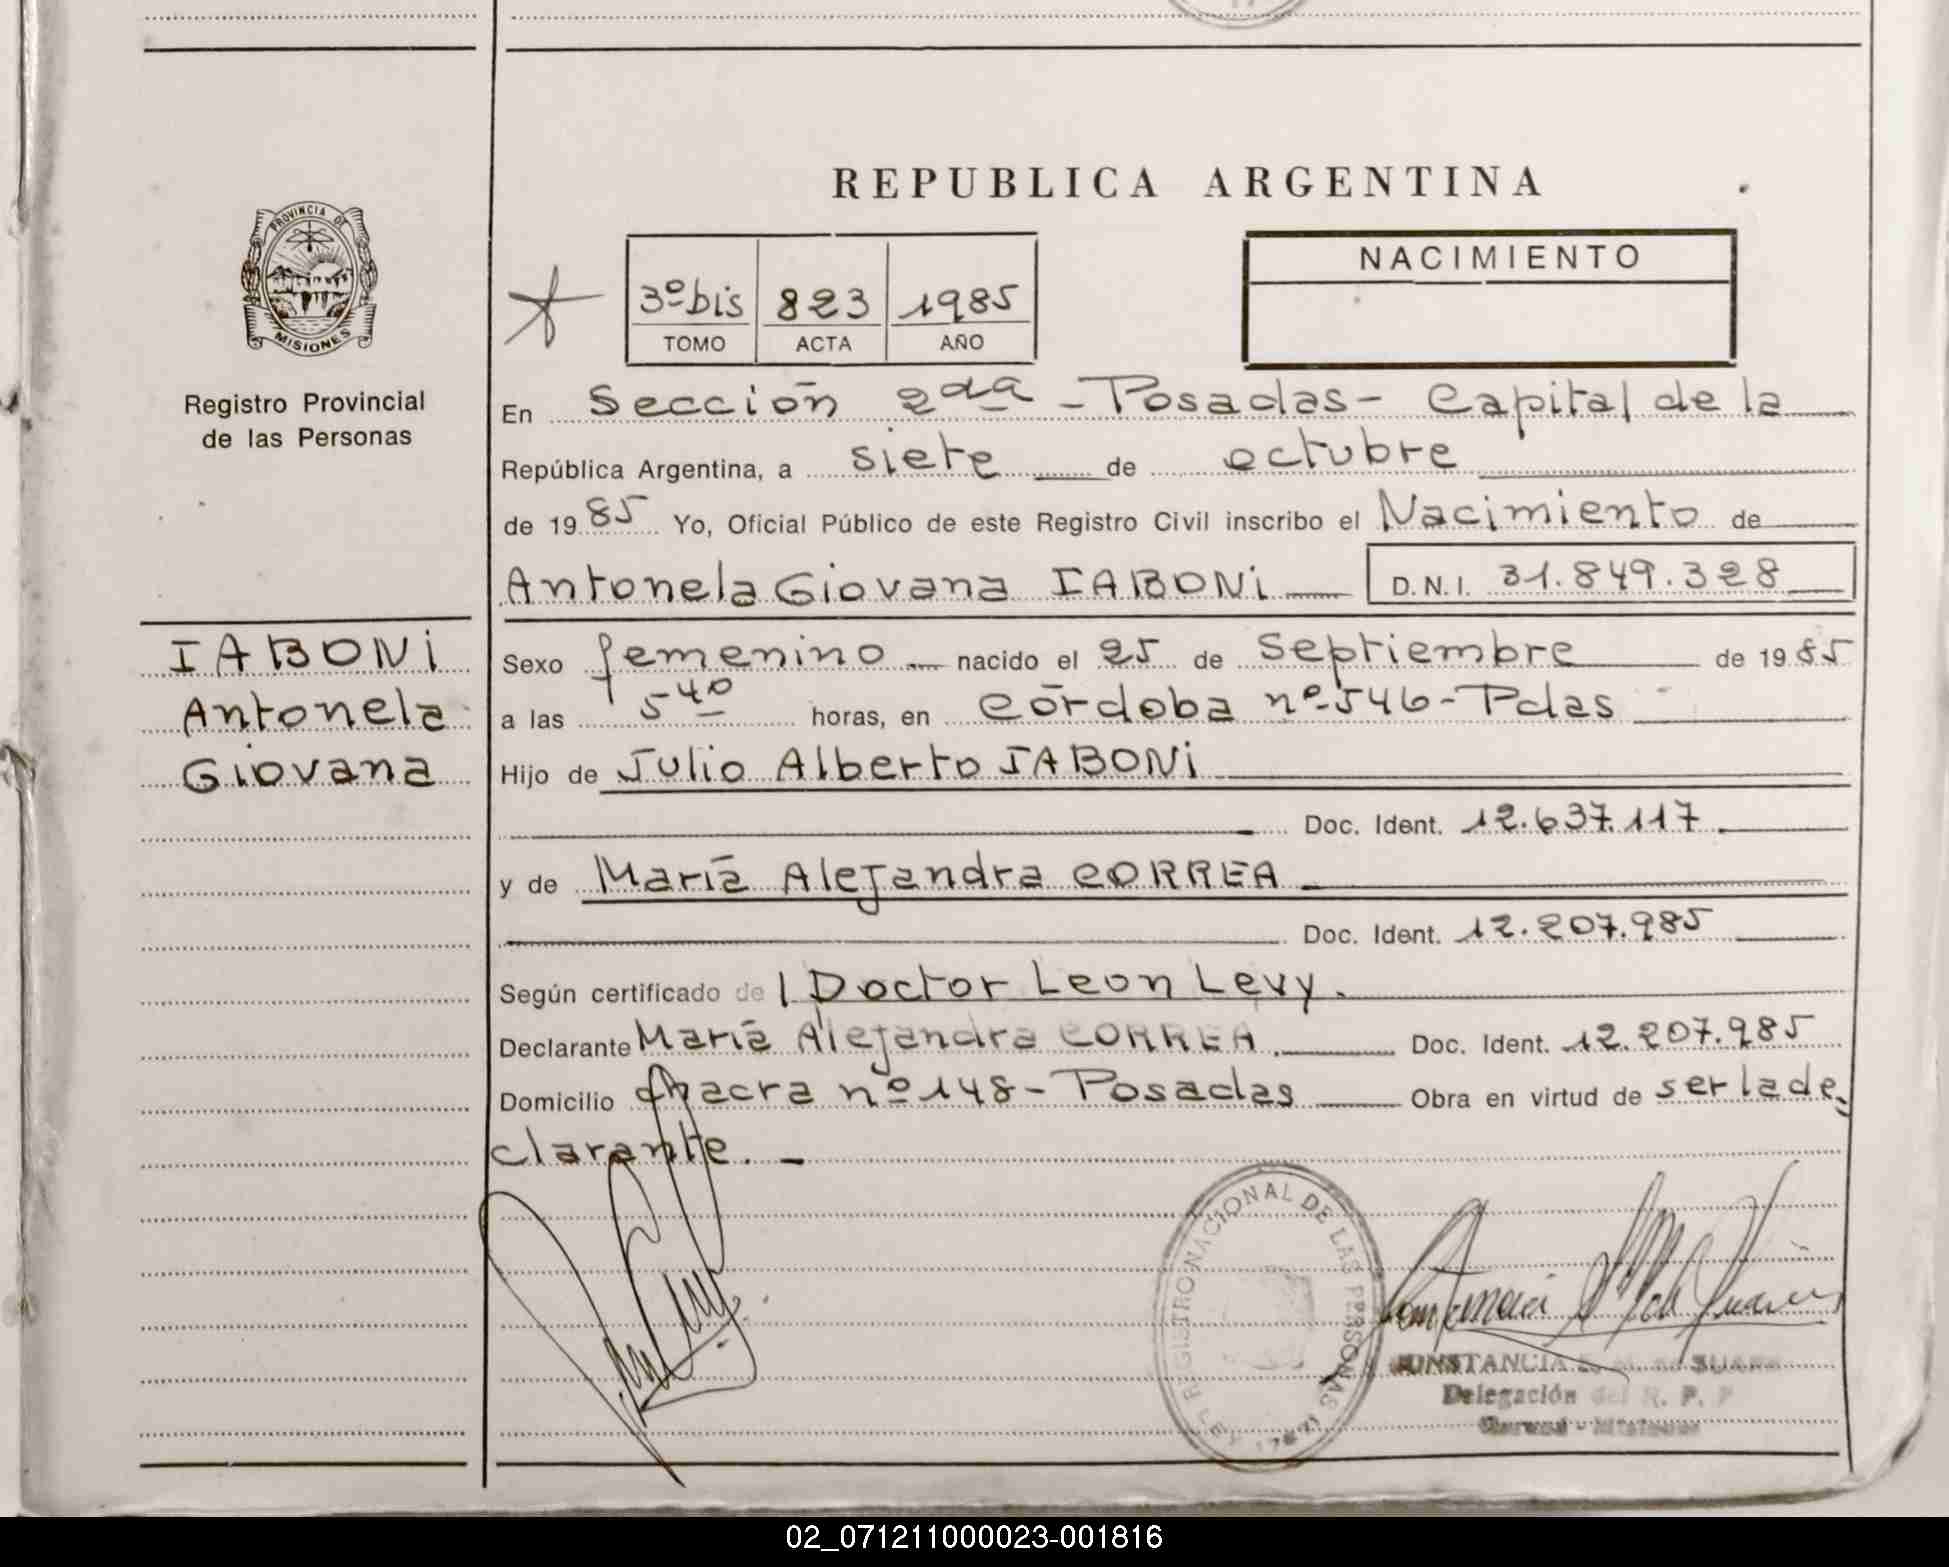 REPUBLICA ARGENTINA
PROVINCIA DE
MISIONES
Registro Provincial
de las Personas
3º bis 823 1985
TOMO ACTA AÑO
NACIMIENTO
En Sección 2da - Posadas - Capital de la
República Argentina, a siete de octubre
de 1985 Yo, Oficial Público de este Registro Civil inscribo el Nacimiento de
Antonela Giovana IABONi D.N.I. 31.849.328
IABONi
Antonela
Giovana
Sexo femenino nacido el 25 de Septiembre de 1985
a las 5 40 horas, en Córdoba nº 546 - Pdas
Hijo de Julio Alberto IABONi
Doc. Ident. 12.637.117
y de María Alejandra CORREA
Doc. Ident. 12.207.985
Según certificado de l Doctor Leon Levy.
Declarante María Alejandra CORREA. Doc. Ident. 12.207.985
Domicilio Chacra nº 148 - Posadas Obra en virtud de ser la de
clarante. -
REGISTRO NACIONAL DE LAS PERSONAS
CONSTANCIA
Delegación del R. P. P
02_071211000023-001816